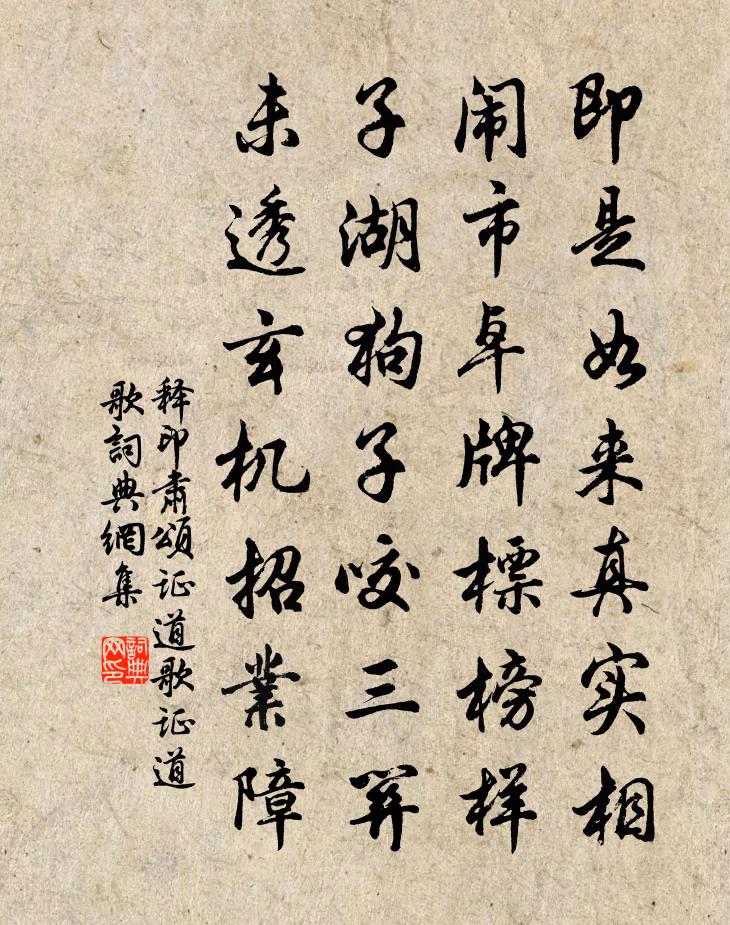 即是如来真实相
闹市卓牌標榜样
子湖狗子咬三
未透玄机招業障
释印肃頌证道歌证道
歌詞典網集
詞典网印